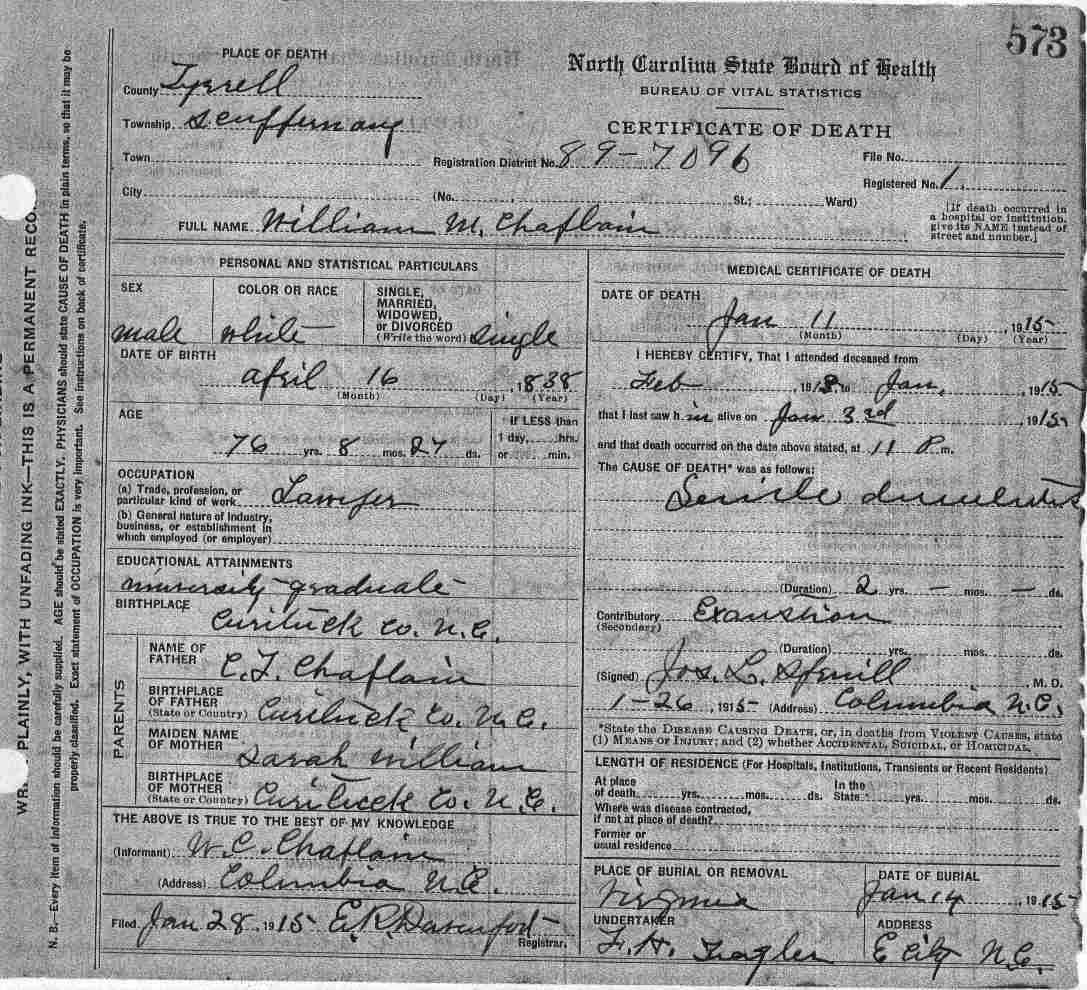 573
PLACE OF DEATH
County Tyrrell
Township Scuffernang
Town
City
North Carolina State Board of Health
BUREAU OF VITAL STATISTICS
CERTIFICATE OF DEATH
Registration District No. 89-7096
File No.
Registered No. 1
(No. St.; Ward)
[If death occurred in a hospital or institution, give its NAME instead of street and number.]
FULL NAME William M. Chaplain
PERSONAL AND STATISTICAL PARTICULARS
SEX
male
COLOR OR RACE
white
SINGLE, MARRIED, WIDOWED, or DIVORCED
(Write the word) single
DATE OF BIRTH
april 16, 1838
(Month) (Day) (Year)
AGE
76 yrs. 8 mos. 27 ds.
If LESS than 1 day, hrs. or min.
OCCUPATION
(a) Trade, profession, or particular kind of work Lawyer
(b) General nature of industry, business, or establishment in which employed (or employer)
EDUCATIONAL ATTAINMENTS
university graduate
BIRTHPLACE
Curituck Co. N.C.
PARENTS
NAME OF FATHER C. T. Chaplain
BIRTHPLACE OF FATHER
(State or Country) Curituck Co. N.C.
MAIDEN NAME OF MOTHER Sarah William
BIRTHPLACE OF MOTHER
(State or Country) Curituck Co. N.C.
THE ABOVE IS TRUE TO THE BEST OF MY KNOWLEDGE
(Informant) W. C. Chaplain
(Address) Columbia N.C.
Filed Jan 28, 1915 E. R. Davenport
Registrar.
MEDICAL CERTIFICATE OF DEATH
DATE OF DEATH
Jan 11, 1915
(Month) (Day) (Year)
I HEREBY CERTIFY, That I attended deceased from
Feb, 191 to Jan, 1915
that I last saw him alive on Jan 3rd 1915
and that death occurred on the date above stated, at 11 P m.
The CAUSE OF DEATH* was as follows:
Senile
(Duration) 2 yrs. - mos. - ds.
Contributory Exaustion
(Secondary)
(Duration) yrs. mos. ds.
(Signed) Jos. L. Spruill, M. D.
1-26, 1915 (Address) Columbia N.C.
*State the DISEASE CAUSING DEATH, or, in deaths from VIOLENT CAUSES, state
(1) MEANS OF INJURY; and (2) whether ACCIDENTAL, SUICIDAL, or HOMICIDAL.
LENGTH OF RESIDENCE (For Hospitals, Institutions, Transients or Recent Residents)
At place of death yrs. mos. ds. In the State yrs. mos. ds.
Where was disease contracted, if not at place of death?
Former or usual residence
PLACE OF BURIAL OR REMOVAL
Virginia
DATE OF BURIAL
Jan 14, 1915
UNDERTAKER
F. H. Zeigler
ADDRESS
E City N.C.
PLAINLY, WITH UNFADING INK—THIS IS A PERMANENT RECO
N. B.—Every item of information should be carefully supplied. AGE should be stated EXACTLY. PHYSICIANS should state CAUSE OF DEATH in plain terms, so that it may be
properly classified. Exact statement of OCCUPATION is very important. See instructions on back of certificate.